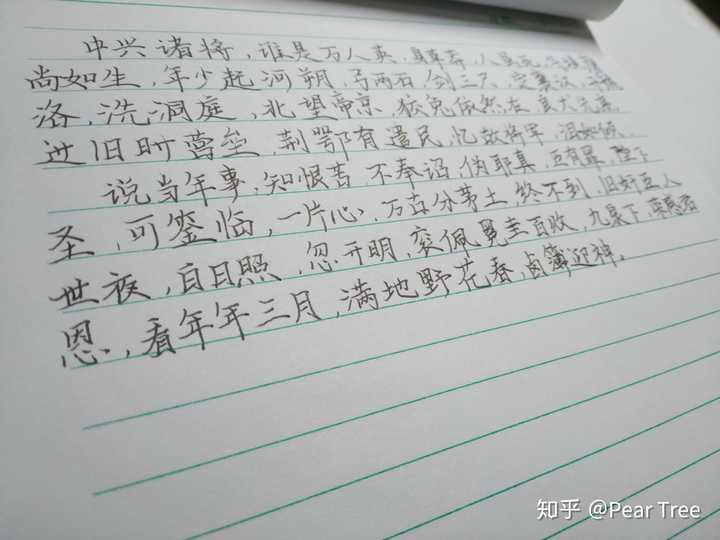 中兴诸将，谁是万人英，身草莽，人虽死，气填膺
尚如生，年少起河朔，弓两石，剑三尺，定襄汉，开虢
洛，洗洞庭，北望帝京，狡兔依然在，良犬先烹，
过旧时营垒，荆鄂有遗民，忆故将军，泪如倾，
说当年事，知恨苦，不奉诏，伪耶真，臣有罪，陛下
圣，可鉴临，一片心，万古分茅土，终不到，旧奸臣，人
世夜，白日照，忽开明，衮佩冕圭百拜，九泉下，荣感君
恩，看年年三月，满地野花春，卤簿迎神。
知乎 @Pear Tree